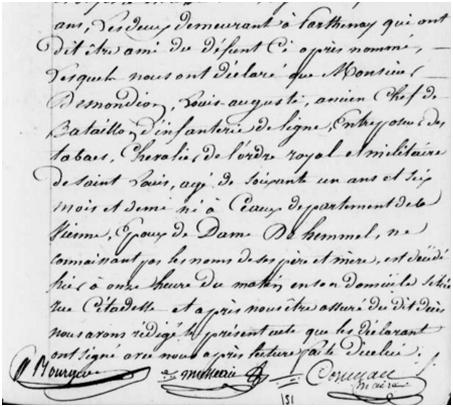 ans, les deux demeurant à Parthenay qui ont
dit être ami du défunt ci après nommé,
Lesquels nous ont déclaré que Monsieur
Desmondion, Louis auguste, ancien Chef de
Bataillon d'infanterie de ligne, Entreposeur des
tabacs, Chevalier de l'ordre royal et militaire
de Saint Louis, agé de soixante un ans et six
mois et demi né à Ceaux département de la
Vienne, Epoux de Dame De hemmel, ne
connaissant pas les noms de ses père et mère, est décédé
hier à onze heure du matin en son domicile sis
rue Citadelle et après nous être assuré du dit décès
nous avons rédigé le présent acte que les déclarant
ont signé avec nous après lecture faite d'icelui.
maire
151